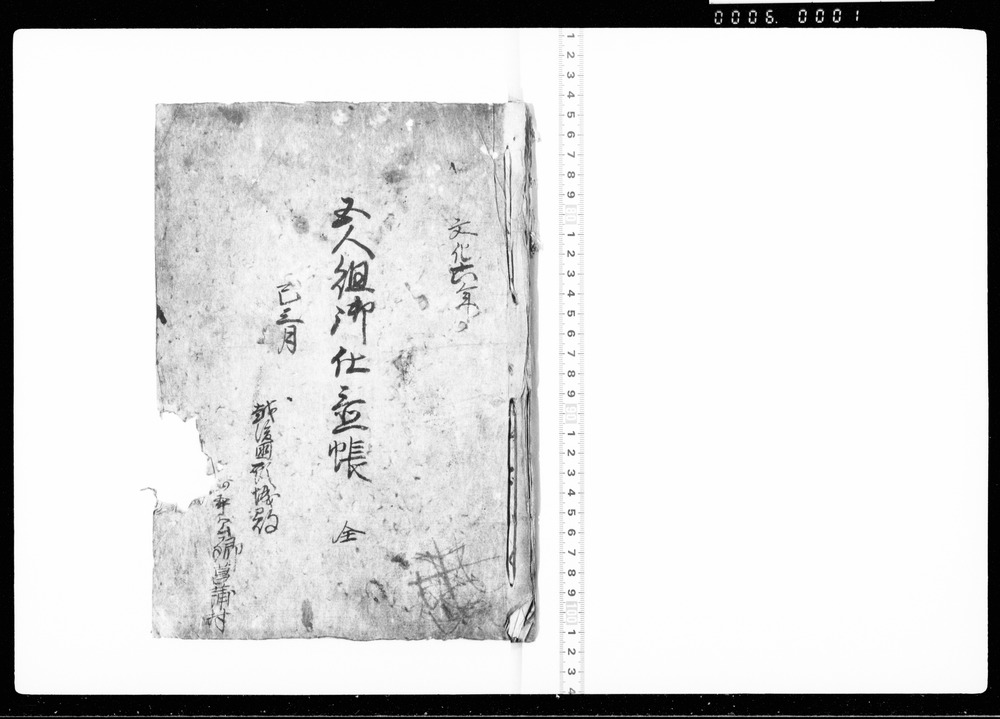 0006. 0001
文化六年
五人組御仕置帳 全
巳三月
越後國頸城郡
菖蒲村